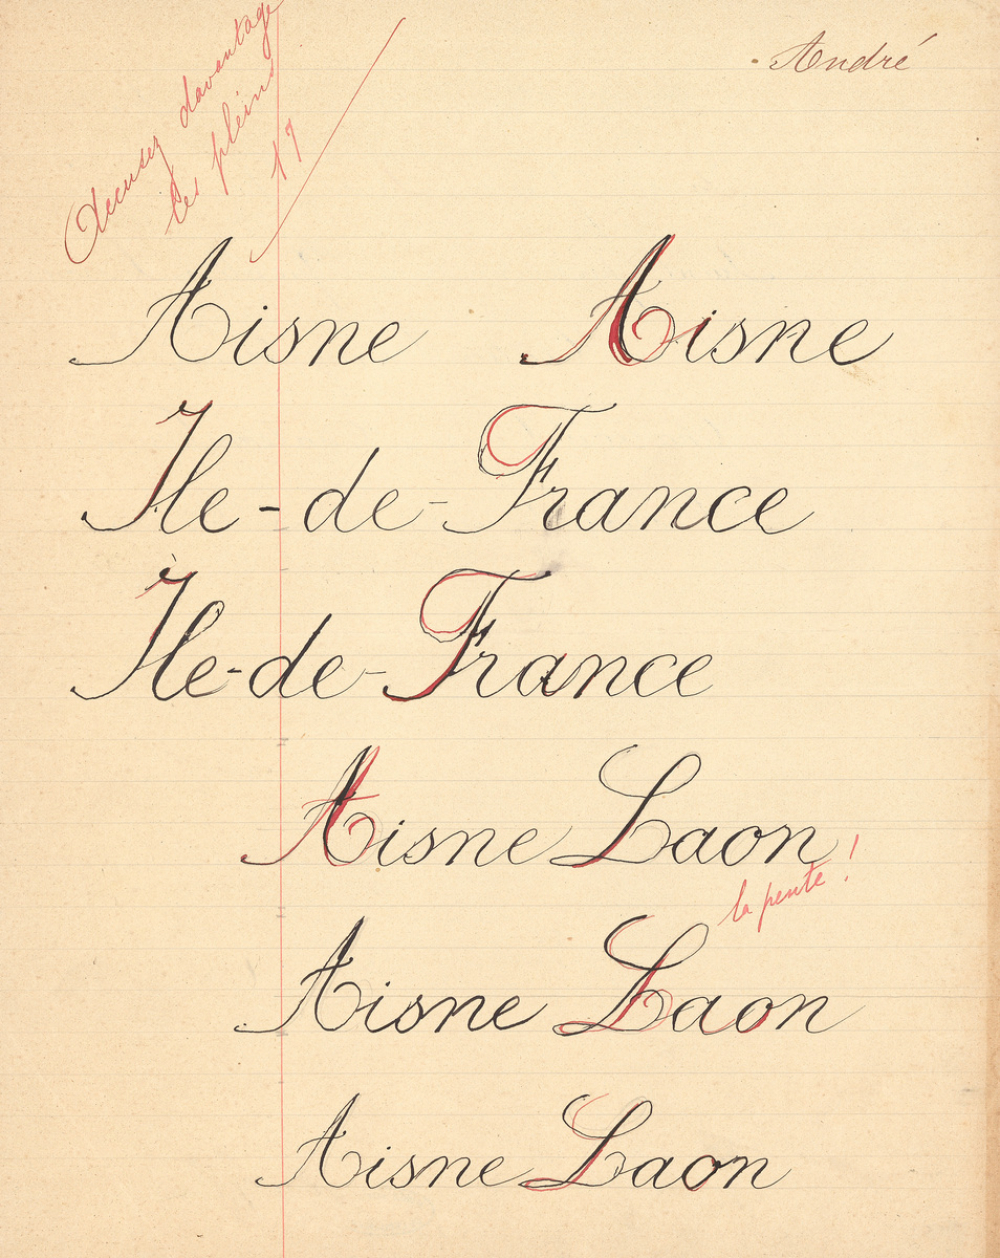 Accusez davantage
les pleins
17
André
Aisne Aisne
Ile-de-France
Ile-de-France
Aisne Laon
la pente !
Aisne Laon
Aisne Laon